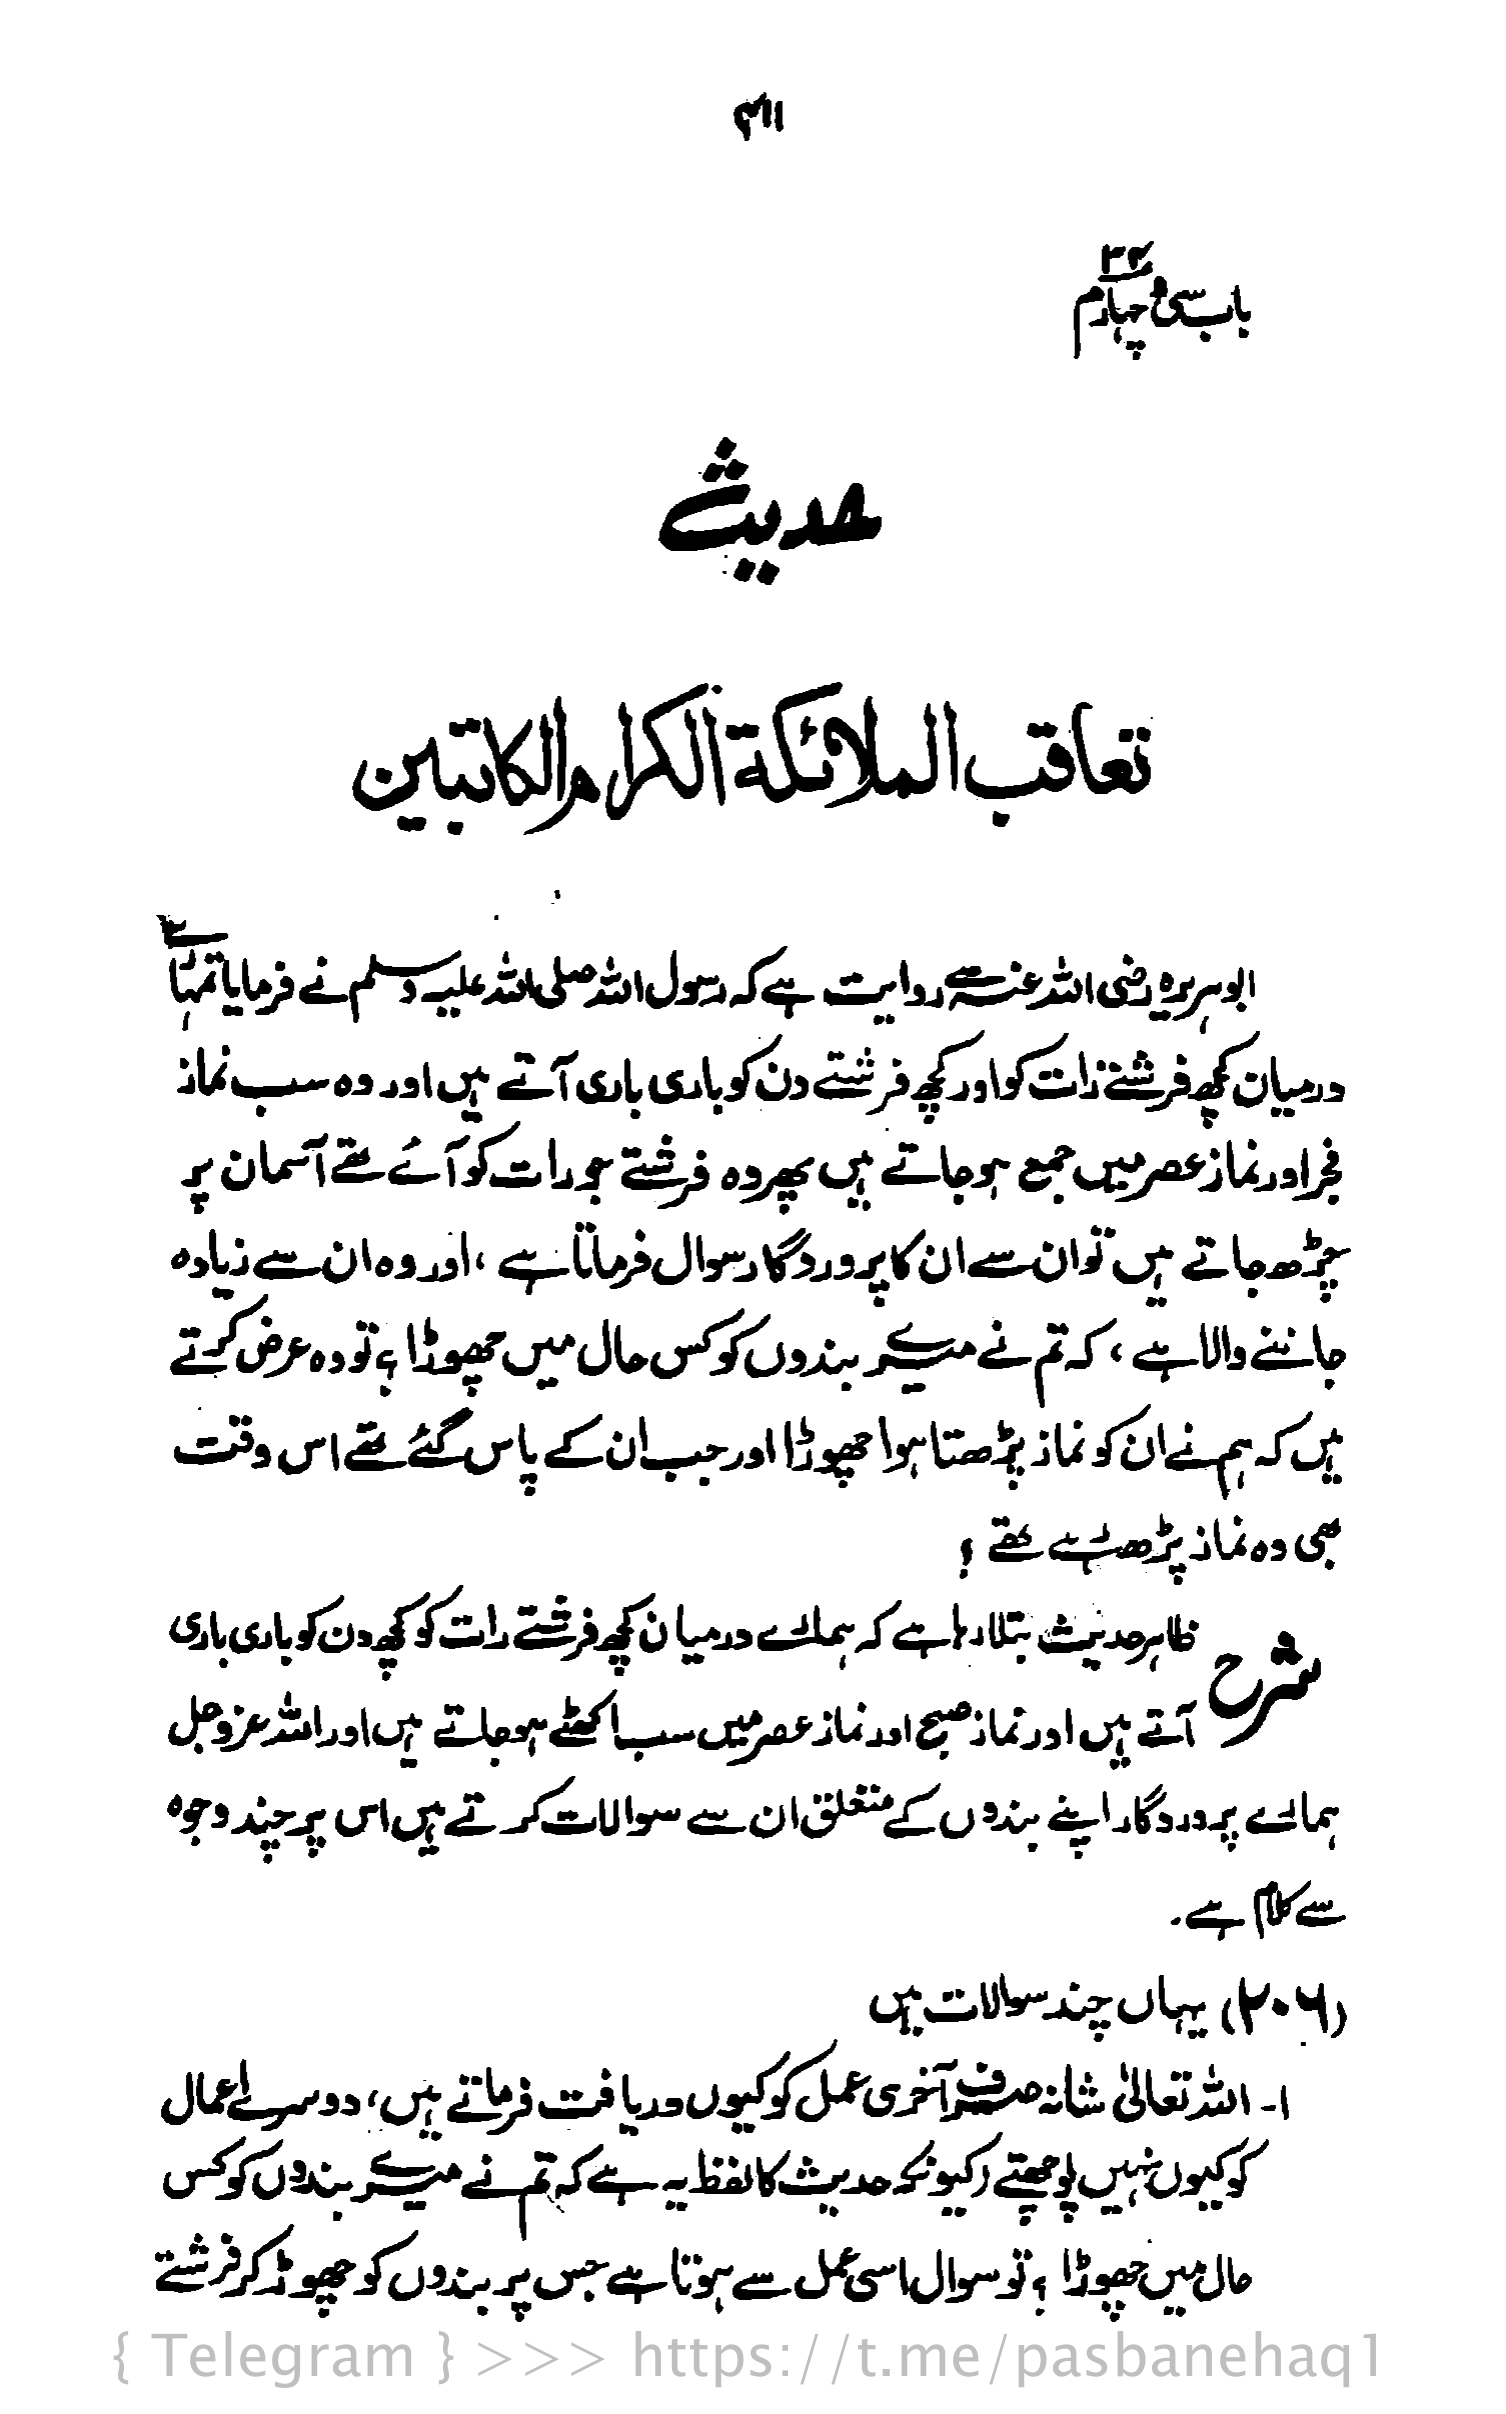 ۴۱۱
۳۴
باب سی و چہارم
حدیث
تعاقب الملائكة الكرام الكاتبين
ابوہریرہ رضی اللہ عنہ سے روایت ہے کہ رسول اللہ صلی اللہ علیہ وسلم نے فرمایا تمہارے
درمیان کچھ فرشتے رات کو اور کچھ فرشتے دن کو باری باری آتے ہیں اور وہ سب نماز
فجر اور نماز عصر میں جمع ہو جاتے ہیں پھر وہ فرشتے جو رات کو آئے تھے آسمان پر
چڑھ جاتے ہیں تو ان سے ان کا پروردگار سوال فرماتا ہے ، اور وہ ان سے زیادہ
جاننے والا ہے ، کہ تم نے میرے بندوں کو کس حال میں چھوڑا ؟ تو وہ عرض کرتے
ہیں کہ ہم نے ان کو نماز پڑھتا ہوا چھوڑا اور جب ان کے پاس گئے تھے اس وقت
بھی وہ نماز پڑھ رہے تھے ؟
شرح ظاہر حدیث بتلا رہا ہے کہ ہمارے درمیان کچھ فرشتے رات کو کچھ دن کو باری باری
آتے ہیں اور نماز صبح اور نماز عصر میں سب اکھٹے ہو جاتے ہیں اور اللہ عزوجل
ہمارے پروردگار اپنے بندوں کے متعلق ان سے سوالات کرتے ہیں اس پر چند وجوہ
سے کلام ہے ۔
(۲۰۶) یہاں چند سوالات ہیں
۱۔ اللہ تعالیٰ شانہ صرف آخری عمل کو کیوں دریافت فرماتے ہیں ، دوسرے اعمال
کو کیوں نہیں پوچھتے (کیونکہ حدیث کا لفظ یہ ہے کہ تم نے میرے بندوں کو کس
حال میں چھوڑا ؟ تو سوال اسی عمل سے ہوتا ہے جس پر بندوں کو چھوڑ کر فرشتے
{ Telegram } >>> https://t.me/pasbanehaq1